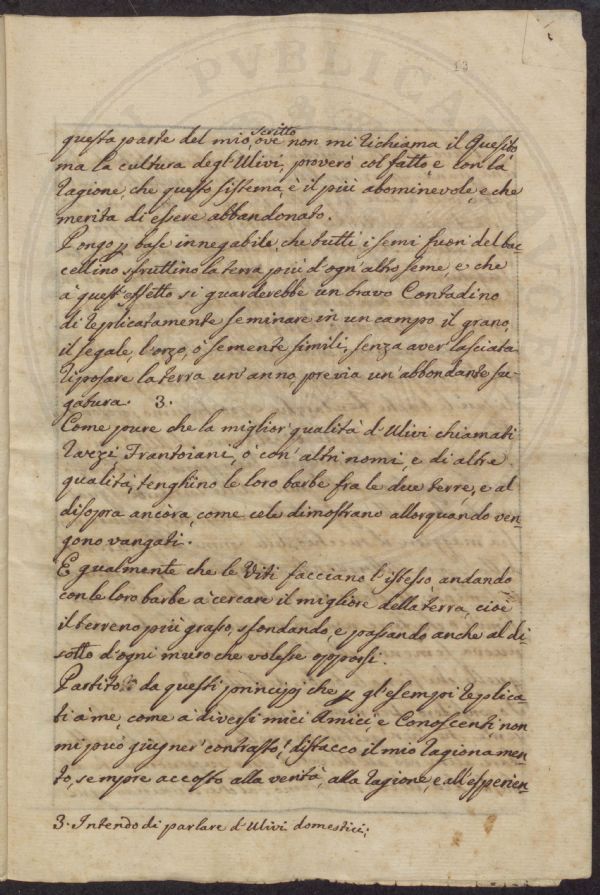 PVBLICA
13
questa parte del mio scritto, ove non mi richiama il Quesito
ma la cultura degl'Ulivi, proverò col fatto, e con la
ragione, che questo sistema, è il più abominevole, e che
merita di essere abbandonato.
Pongo p base innegabile, che tutti i semi fuori del bac=
cellino sfruttino la terra più d'ogn'altro seme, e che
à quest'effetto si guarderebbe un bravo Contadino
di replicatamente seminare in un campo il grano,
il segale, l'orzo, ò semente simili, senza aver lasciata
riposare la terra un'anno, previa un'abbondante fu=
gatura. 3.
Come pure che la miglior qualità d'Ulivi chiamati
Razzi, Frantoiani, ò con'altri nomi, e di altre
qualità, tenghino le loro barbe fra le due terre, e al
disopra ancòra, come cele dimostrano allorquando ven=
gono vangati.
E gualmente che le Viti facciano l'istesso, andando
con le loro barbe à cercare il migliore della terra, cioè
il terreno più grasso, sfondando, e passando anche al di
sotto d'ogni muro che volesse opporsi.
Partito da questi principj che p gl'esempi replica=
ti à me, come a diversi miei Amici, e Conoscenti, non
mi può giugner contrasto, distacco il mio ragionamen=
to, sempre accosto alla verità, alla ragione, e all'esperien=
3. Intendo di parlare d'Ulivi domestici;